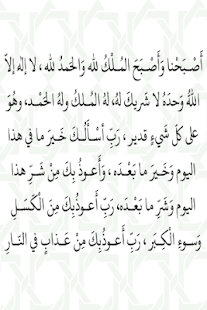 أَصْبَحْنا وَأَصْبَحَ المُـلْكُ لله وَالحَمدُ لله ، لا إلهَ إلاّ
اللّهُ وَحدَهُ لا شَريكَ لهُ، لهُ المُـلكُ ولهُ الحَمْـد، وهُوَ
على كلّ شَيءٍ قدير ، رَبِّ أسْـأَلُـكَ خَـيرَ ما في هذا
اليوم وَخَـيرَ ما بَعْـدَه ، وَأَعـوذُ بِكَ مِنْ شَـرِّ هذا
اليوم وَشَرِّ ما بَعْـدَه، رَبِّ أَعـوذُبِكَ مِنَ الْكَسَـلِ
وَسـوءِ الْكِـبَر ، رَبِّ أَعـوذُبِكَ مِنْ عَـذابٍ في النّـارِ